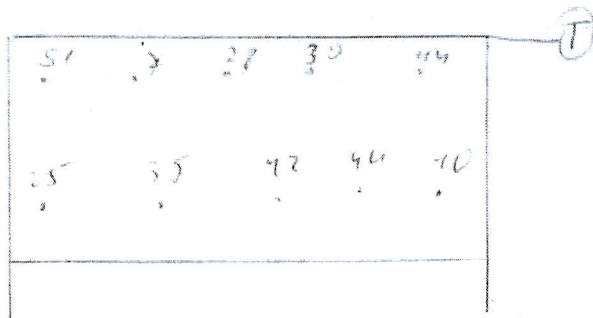 51 7 28 30 44 T
35 42 44 10